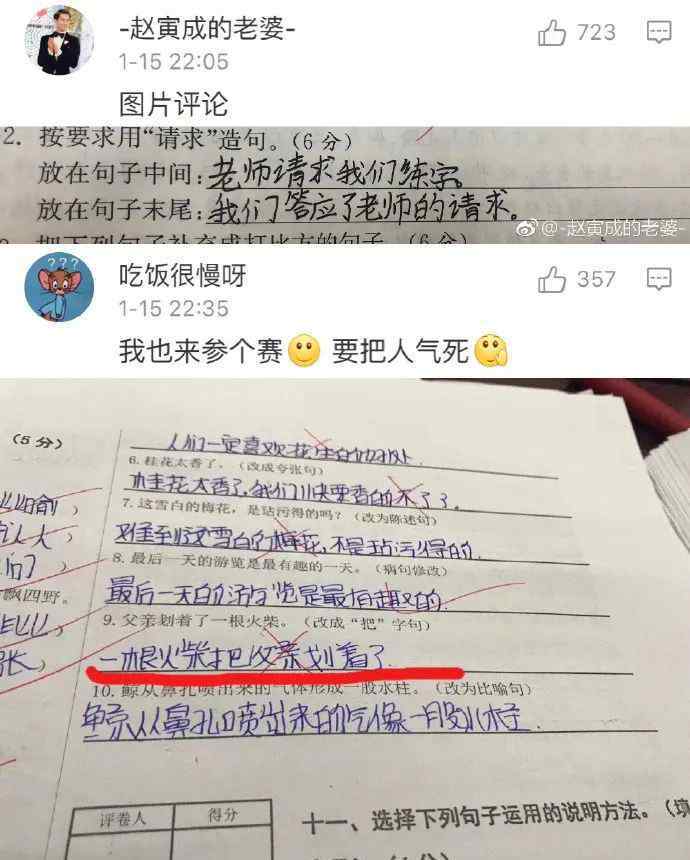 -赵寅成的老婆-
723
1-15 22:05
图片评论
2. 按要求用“请求”造句。(6分)
放在句子中间:老师请求我们练字。
放在句子末尾:我们答应了老师的请求。
把下列句子补充成打比方的句子。(6分)
@-赵寅成的老婆-
???
吃饭很慢呀
357
1-15 22:35
我也来参个赛 要把人气死
(5分)
人们一定喜欢花生的好处.
6. 桂花太香了。(改成夸张句)
桂花太香了,我们快要香的不了了.
7. 这雪白的梅花,是玷污得的吗?(改为陈述句)
难到这雪白的梅花,不是玷污得的.
8. 最后一天的游览是最有趣的一天。(病句修改)
最后一天的游览是最有趣的.
飘四野。
9. 父亲划着了一根火柴。(改成“把”字句)
一根火柴把父亲划着了.
10. 鲸从鼻孔喷出来的气体形成一股水柱。(改为比喻句)
鲸从鼻孔喷出来的气像一股水柱.
评卷人 得分
十一、选择下列句子运用的说明方法。(填